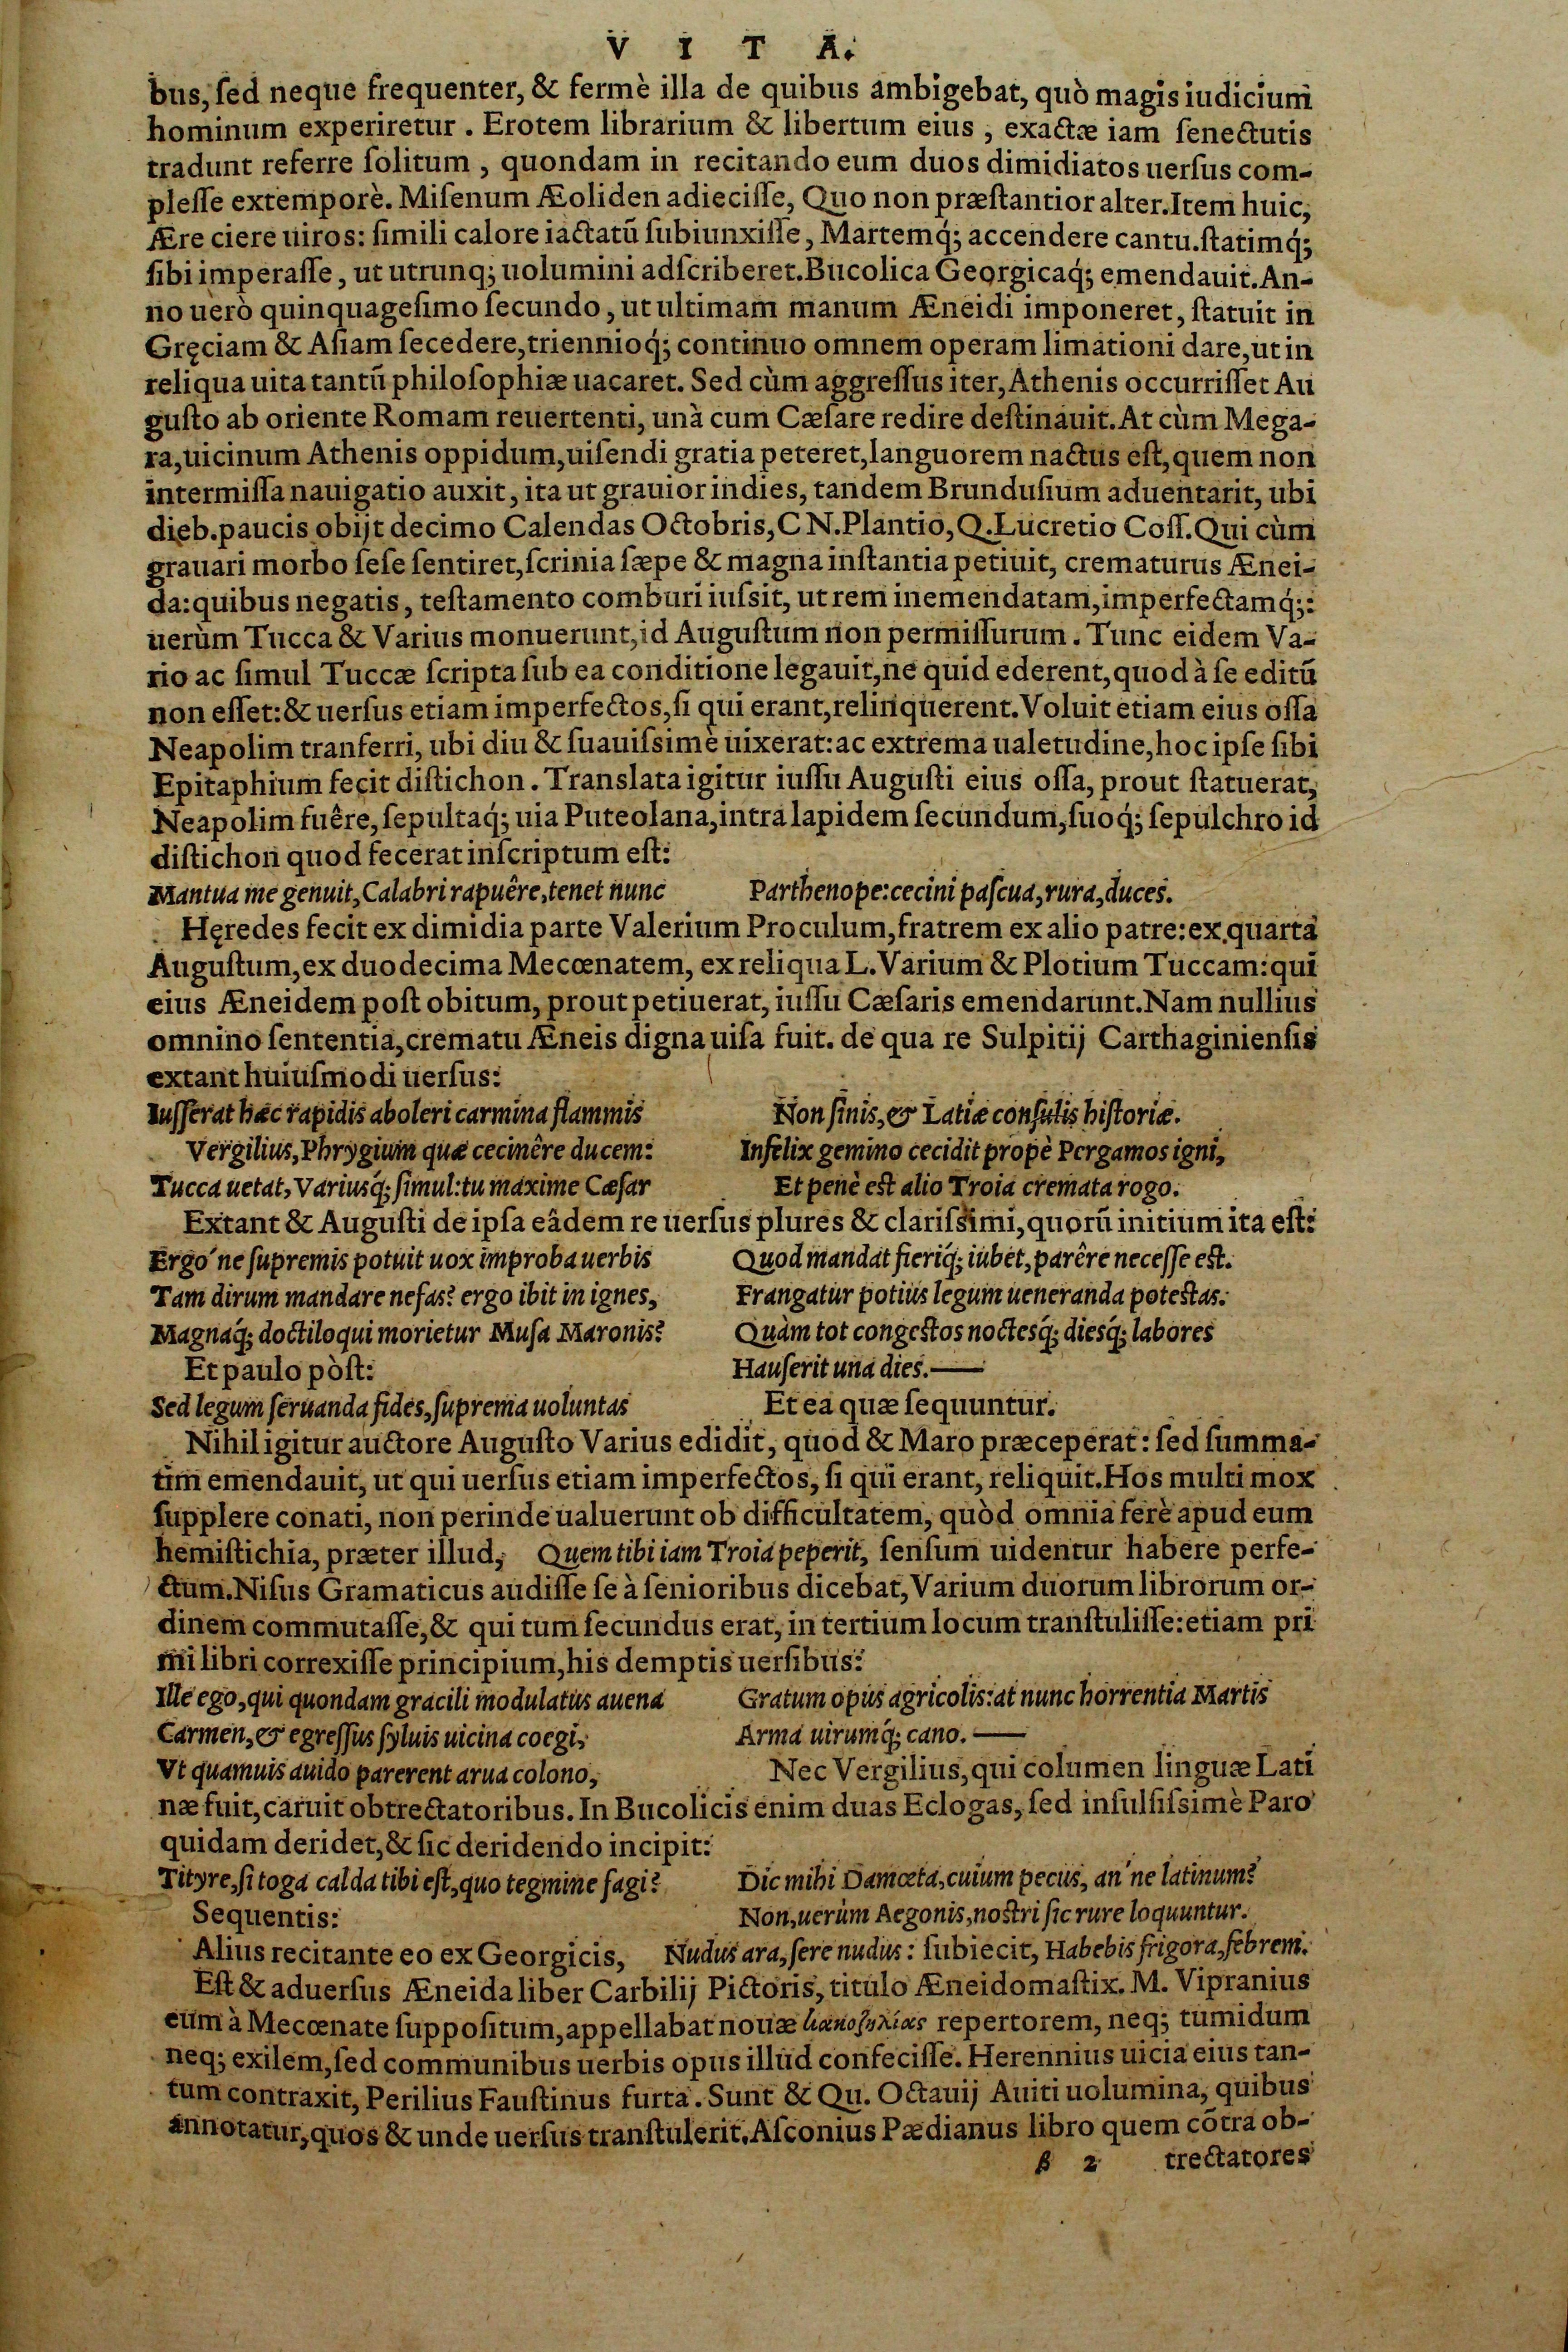 V I T A.
bus, ſed neque frequenter, & fermè illa de quibus ambigebat, quò magis iudicium
hominum experiretur. Erotem librarium & libertum eius, exactæ iam ſenectutis
tradunt referre ſolitum, quondam in recitando eum duos dimidiatos uerſus com-
pleſſe extemporè. Miſenum Æoliden adieciſſe, Quo non præſtantior alter. Item huic,
Ære ciere uiros: ſimili calore iactatũ ſubiunxiſſe, Martemq́; accendere cantu. ſtatimq́;
ſibi imperaſſe, ut utrunq; uolumini adſcriberet. Bucolica Georgicaq́; emendauit. An-
no uerò quinquageſimo ſecundo, ut ultimam manum Æneidi imponeret, ſtatuit in
Gręciam & Aſiam ſecedere, triennioq́; continuo omnem operam limationi dare, ut in
reliqua uita tantũ philoſophiæ uacaret. Sed cùm aggreſſus iter, Athenis occurriſſet Au
guſto ab oriente Romam reuertenti, unà cum Cæſare redire deſtinauit. At cùm Mega-
ra, uicinum Athenis oppidum, uiſendi gratia peteret, languorem nactus eſt, quem non
intermiſſa nauigatio auxit, ita ut grauior indies, tandem Brunduſium aduentarit, ubi
dieb. paucis obijt decimo Calendas Octobris, CN. Plantio, Q. Lucretio Coſſ. Qui cùm
grauari morbo ſeſe ſentiret, ſcrinia ſæpe & magna inſtantia petiuit, crematurus Ænei-
da: quibus negatis, teſtamento comburi iuſsit, ut rem inemendatam, imperfectamq́;:
uerùm Tucca & Varius monuerunt, id Auguſtum non permiſſurum. Tunc eidem Va-
rio ac ſimul Tuccæ ſcripta ſub ea conditione legauit, ne quid ederent, quod à ſe editũ
non eſſet: & uerſus etiam imperfectos, ſi qui erant, relinquerent. Voluit etiam eius oſſa
Neapolim tranferri, ubi diu & ſuauiſsimè uixerat: ac extrema ualetudine, hoc ipſe ſibi
Epitaphium fecit diſtichon. Translata igitur iuſſu Auguſti eius oſſa, prout ſtatuerat,
Neapolim fuêre, ſepultaq́; uia Puteolana, intra lapidem ſecundum, ſuoq́; ſepulchro id
diſtichon quod fecerat inſcriptum eſt:
Mantua me genuit, Calabri rapuêre, tenet nunc Parthenope: cecini paſcua, rura, duces.
Hęredes fecit ex dimidia parte Valerium Proculum, fratrem ex alio patre: ex quarta
Auguſtum, ex duodecima Mecœnatem, ex reliqua L. Varium & Plotium Tuccam: qui
eius Æneidem poſt obitum, prout petiuerat, iuſſu Cæſaris emendarunt. Nam nullius
omnino ſententia, crematu Æneis digna uiſa fuit. de qua re Sulpitij Carthaginienſis
extant huiuſmodi uerſus:
Iuſſerat hæc rapidis aboleri carmina flammis
Vergilius, Phrygium quæ cecinêre ducem:
Tucca uetat, Variusq́; ſimul: tu maxime Cæſar
Non ſinis, & Latiæ conſulis hiſtoriæ.
Infelix gemino cecidit propè Pergamos igni,
Et penè eſt alio Troia cremata rogo.
Extant & Auguſti de ipſa eâdem re uerſus plures & clariſsimi, quorũ initium ita eſt:
Ergo'ne ſupremis potuit uox improba uerbis
Tam dirum mandare nefas? ergo ibit in ignes,
Magnaq́; doctiloqui morietur Muſa Maronis?
Et paulo pòſt:
Sed legum ſeruanda fides, ſuprema uoluntas
Quod mandat fieriq́; iubet, parêre neceſſe eſt.
Frangatur potius legum ueneranda poteſtas.
Quàm tot congeſtos noctesq́; diesq́; labores
Hauſerit una dies.——
Et ea quæ ſequuntur.
Nihil igitur auctore Auguſto Varius edidit, quod & Maro præceperat: ſed ſumma-
tim emendauit, ut qui uerſus etiam imperfectos, ſi qui erant, reliquit. Hos multi mox
ſupplere conati, non perinde ualuerunt ob difficultatem, quòd omnia ferè apud eum
hemiſtichia, præter illud, Quem tibi iam Troia peperit, ſenſum uidentur habere perfe-
ctum. Niſus Gramaticus audiſſe ſe à ſenioribus dicebat, Varium duorum librorum or-
dinem commutaſſe, & qui tum ſecundus erat, in tertium locum tranſtuliſſe: etiam pri
mi libri correxiſſe principium, his demptis uerſibus:
Ille ego, qui quondam gracili modulatus auena
Carmen, & egreſſus ſyluis uicina coegi,
Vt quamuis auido parerent arua colono,
Gratum opus agricolis: at nunc horrentia Martis
Arma uirumq́; cano.——
Nec Vergilius, qui columen linguæ Lati
næ fuit, caruit obtrectatoribus. In Bucolicis enim duas Eclogas, ſed inſulſiſsimè Paro
quidam deridet, & ſic deridendo incipit:
Tityre, ſi toga calda tibi eſt, quo tegmine fagi?
Sequentis:
Dic mihi Damœta, cuium pecus, an'ne latinum?
Non, uerùm Aegonis, noſtri ſic rure loquuntur.
Alius recitante eo ex Georgicis, Nudus ara, ſere nudus: ſubiecit, Habebis frigora, febrem.
Eſt & aduerſus Æneida liber Carbilij Pictoris, titulo Æneidomaſtix. M. Vipranius
eum à Mecœnate ſuppoſitum, appellabat nouæ repertorem, neq; tumidum
neq; exilem, ſed communibus uerbis opus illud confeciſſe. Herennius uicia eius tan-
tum contraxit, Perilius Fauſtinus furta. Sunt & Qu. Octauij Auiti uolumina, quibus
annotatur, quos & unde uerſus tranſtulerit. Aſconius Pædianus libro quem cõtra ob-
β 2 trectatores